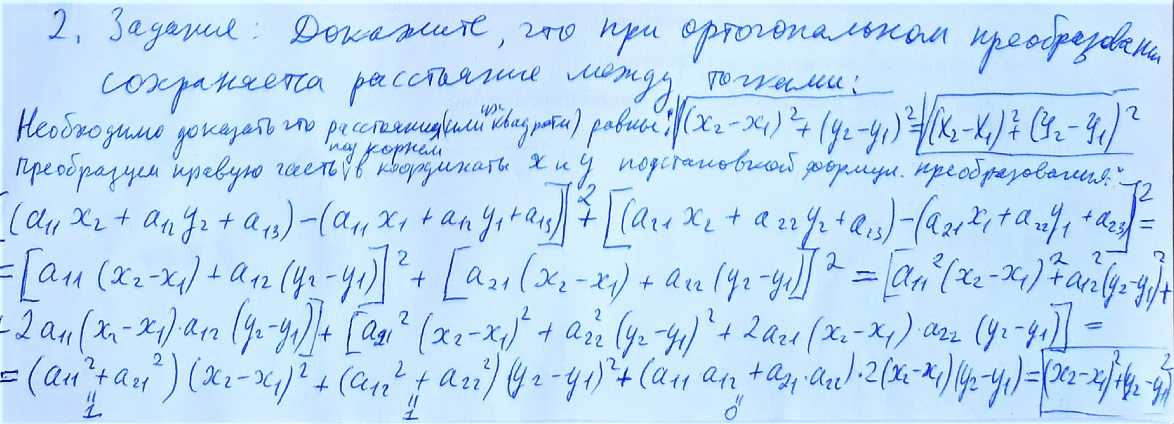 2. Задание: Докажите, что при ортогональном преобразовании
сохраняется расстояние между точками:
Необходимо доказать что расстояния (или их квадраты) равны: √(x₂-x₁)²+(y₂-y₁)² = √(X₂-X₁)²+(Y₂-Y₁)²
Преобразуем правую часть под корнем в координаты x и y подстановкой формул. преобразования:
[(a₁₁x₂ + a₁₂y₂ + a₁₃)-(a₁₁x₁ + a₁₂y₁ + a₁₃)]² + [(a₂₁x₂ + a₂₂y₂ + a₂₃)-(a₂₁x₁ + a₂₂y₁ + a₂₃)]² =
= [a₁₁(x₂-x₁) + a₁₂(y₂-y₁)]² + [a₂₁(x₂-x₁) + a₂₂(y₂-y₁)]² = [a₁₁²(x₂-x₁)² + a₁₂²(y₂-y₁)² +
+ 2a₁₁(x₂-x₁)·a₁₂(y₂-y₁)] + [a₂₁²(x₂-x₁)² + a₂₂²(y₂-y₁)² + 2a₂₁(x₂-x₁)·a₂₂(y₂-y₁)] =
= (a₁₁² + a₂₁²)(x₂-x₁)² + (a₁₂² + a₂₂²)(y₂-y₁)² + (a₁₁a₁₂ + a₂₁·a₂₂)·2(x₂-x₁)(y₂-y₁) = (x₂-x₁)²+(y₂-y₁)²
" " "
1 1 0